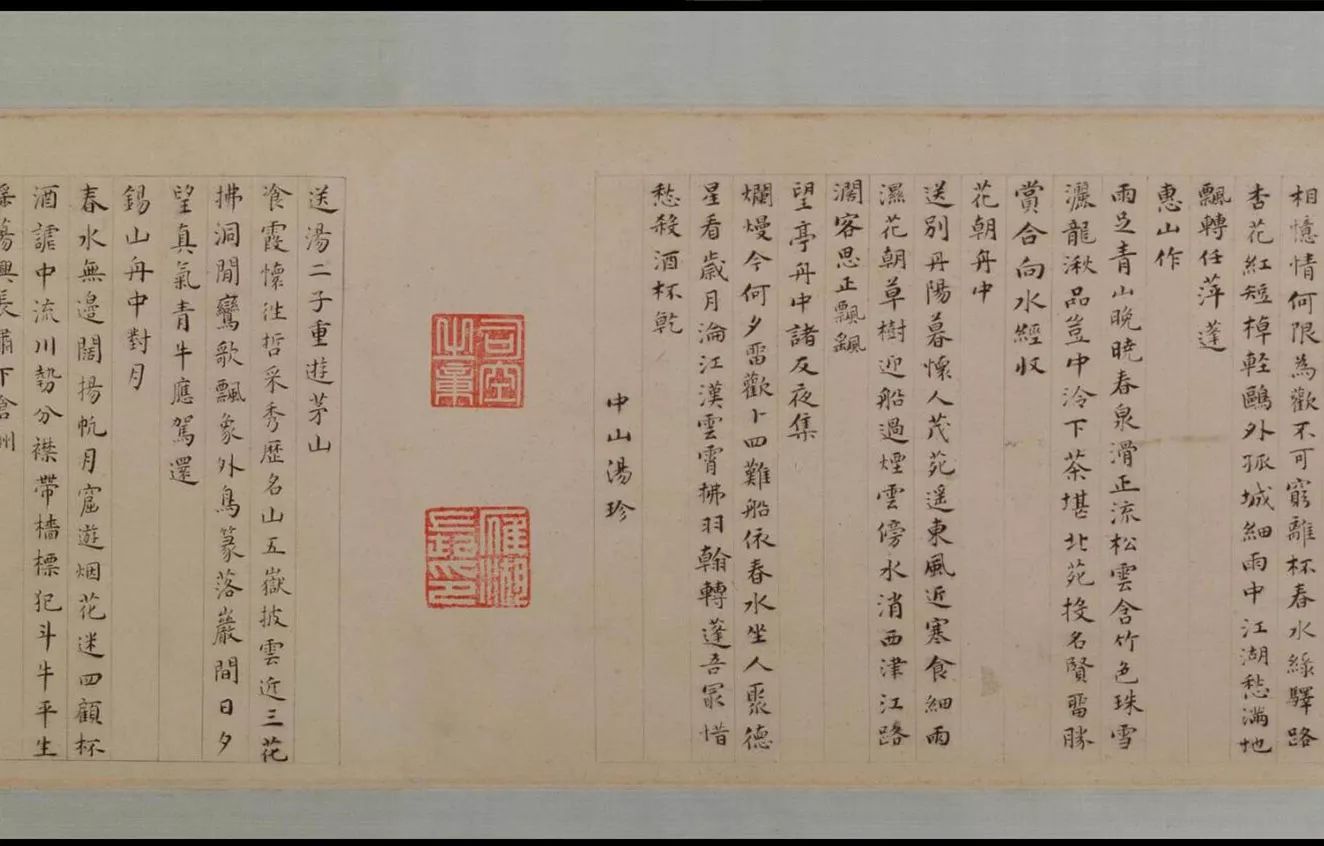 相憶情何限為歡不可窮離杯春水綠驛路
杏花紅短棹輕鷗外孤城細雨中江湖愁滿地
飄轉任萍蓬
惠山作
雨足青山晚曉春泉滑正流松雲含竹色珠雪
灑龍湫品豈中泠下茶堪北苑投名賢留勝
賞合向水經收
花朝舟中
送別丹陽暮懷人茂苑遥東風近寒食細雨
濕花朝草樹迎船過煙雲傍水消西津江路
濶客思正飄飖
望亭舟中諸友夜集
爛熳今何夕留歡卜四難船依春水坐人聚德
星看歲月淪江漢雲霄拂羽翰轉蓬吾冣惜
愁殺酒杯乾
中山湯珍
司空之章
送湯二子重遊茅山
飡霞懷往哲采秀歷名山五嶽披雲近三花
拂洞閒鸞歌飄象外鳥篆落巖間日夕
望真氣青牛應駕還
錫山舟中對月
春水無邊闊揚帆月窟遊烟花迷四顧杯
酒謔中流川勢分襟帶檣標犯斗牛平生